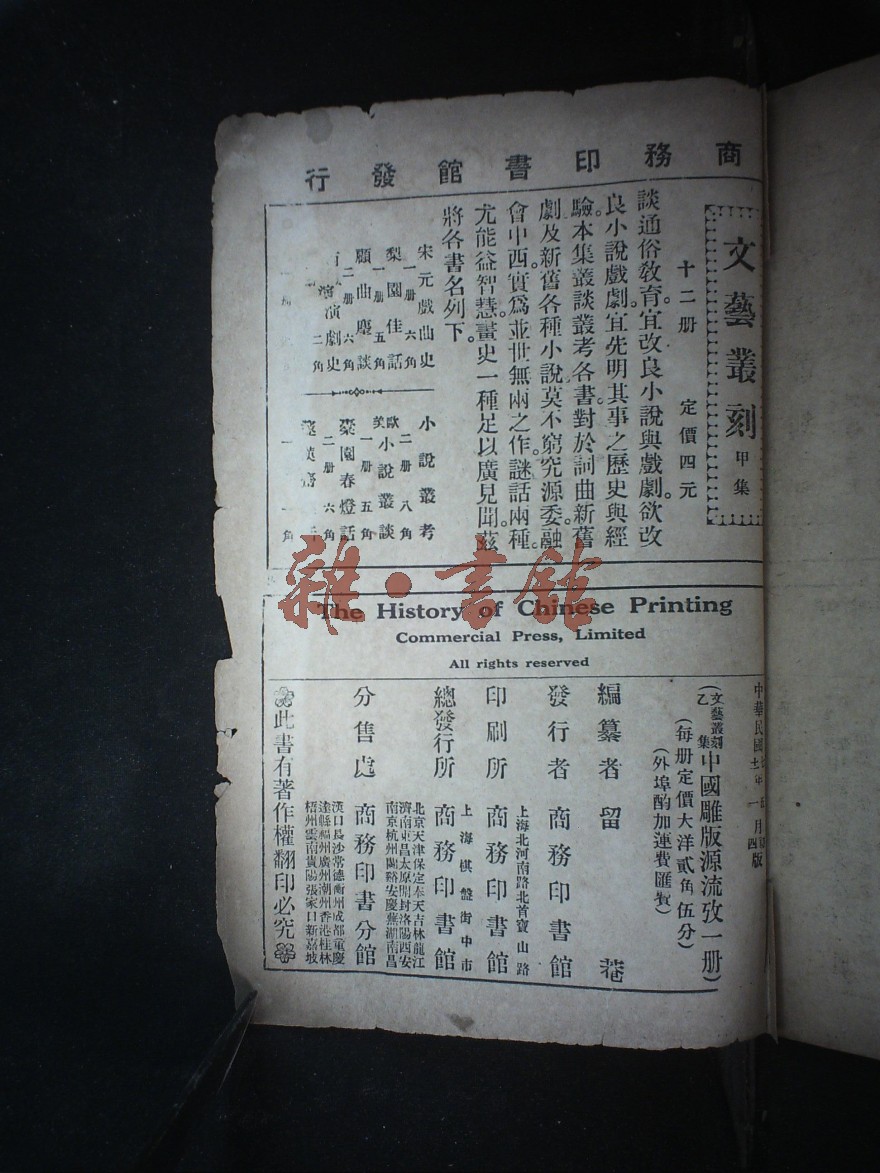 商務印書館發行
文藝叢刻甲集
十二册 定價四元
談通俗敎育。宜改良小說與戲劇。欲改
良小說戲劇。宜先明其事之歷史與經
驗。本集叢談叢考各書。對於詞曲新舊
劇及新舊各種小說。莫不窮究源委。融
會中西。實爲並世無兩之作。謎話兩種。
尤能益智慧。畫史一種。足以廣見聞。茲
將各書名列下。
宋元戲曲史
一册 六角
梨園佳話
一册 五角
顧曲麈談
二册 六角
演劇史
二角
小說叢考
二册 八角
歐美小說叢談
一册 五角
橐園春燈話
二册 六角
角
雜·書館
The History of Chinese Printing
Commercial Press, Limited
All rights reserved
中華民國
年一月
四版
(文藝叢刻乙集中國雕版源流攷一册)
(每册定價大洋貳角伍分)
(外埠酌加運費匯費)
編纂者 留菴
發行者 商務印書館
上海北河南路北首寶山路
印刷所 商務印書館
上海棋盤街中市
總發行所 商務印書館
北京天津保定奉天吉林龍江
濟南東昌太原開封洛陽西安
南京杭州蘭谿安慶蕪湖南昌
分售處 商務印書分館
漢口長沙常德衡州成都重慶
達縣福州廣州潮州香港桂林
梧州雲南貴陽張家口新嘉坡
此書有著作權翻印必究